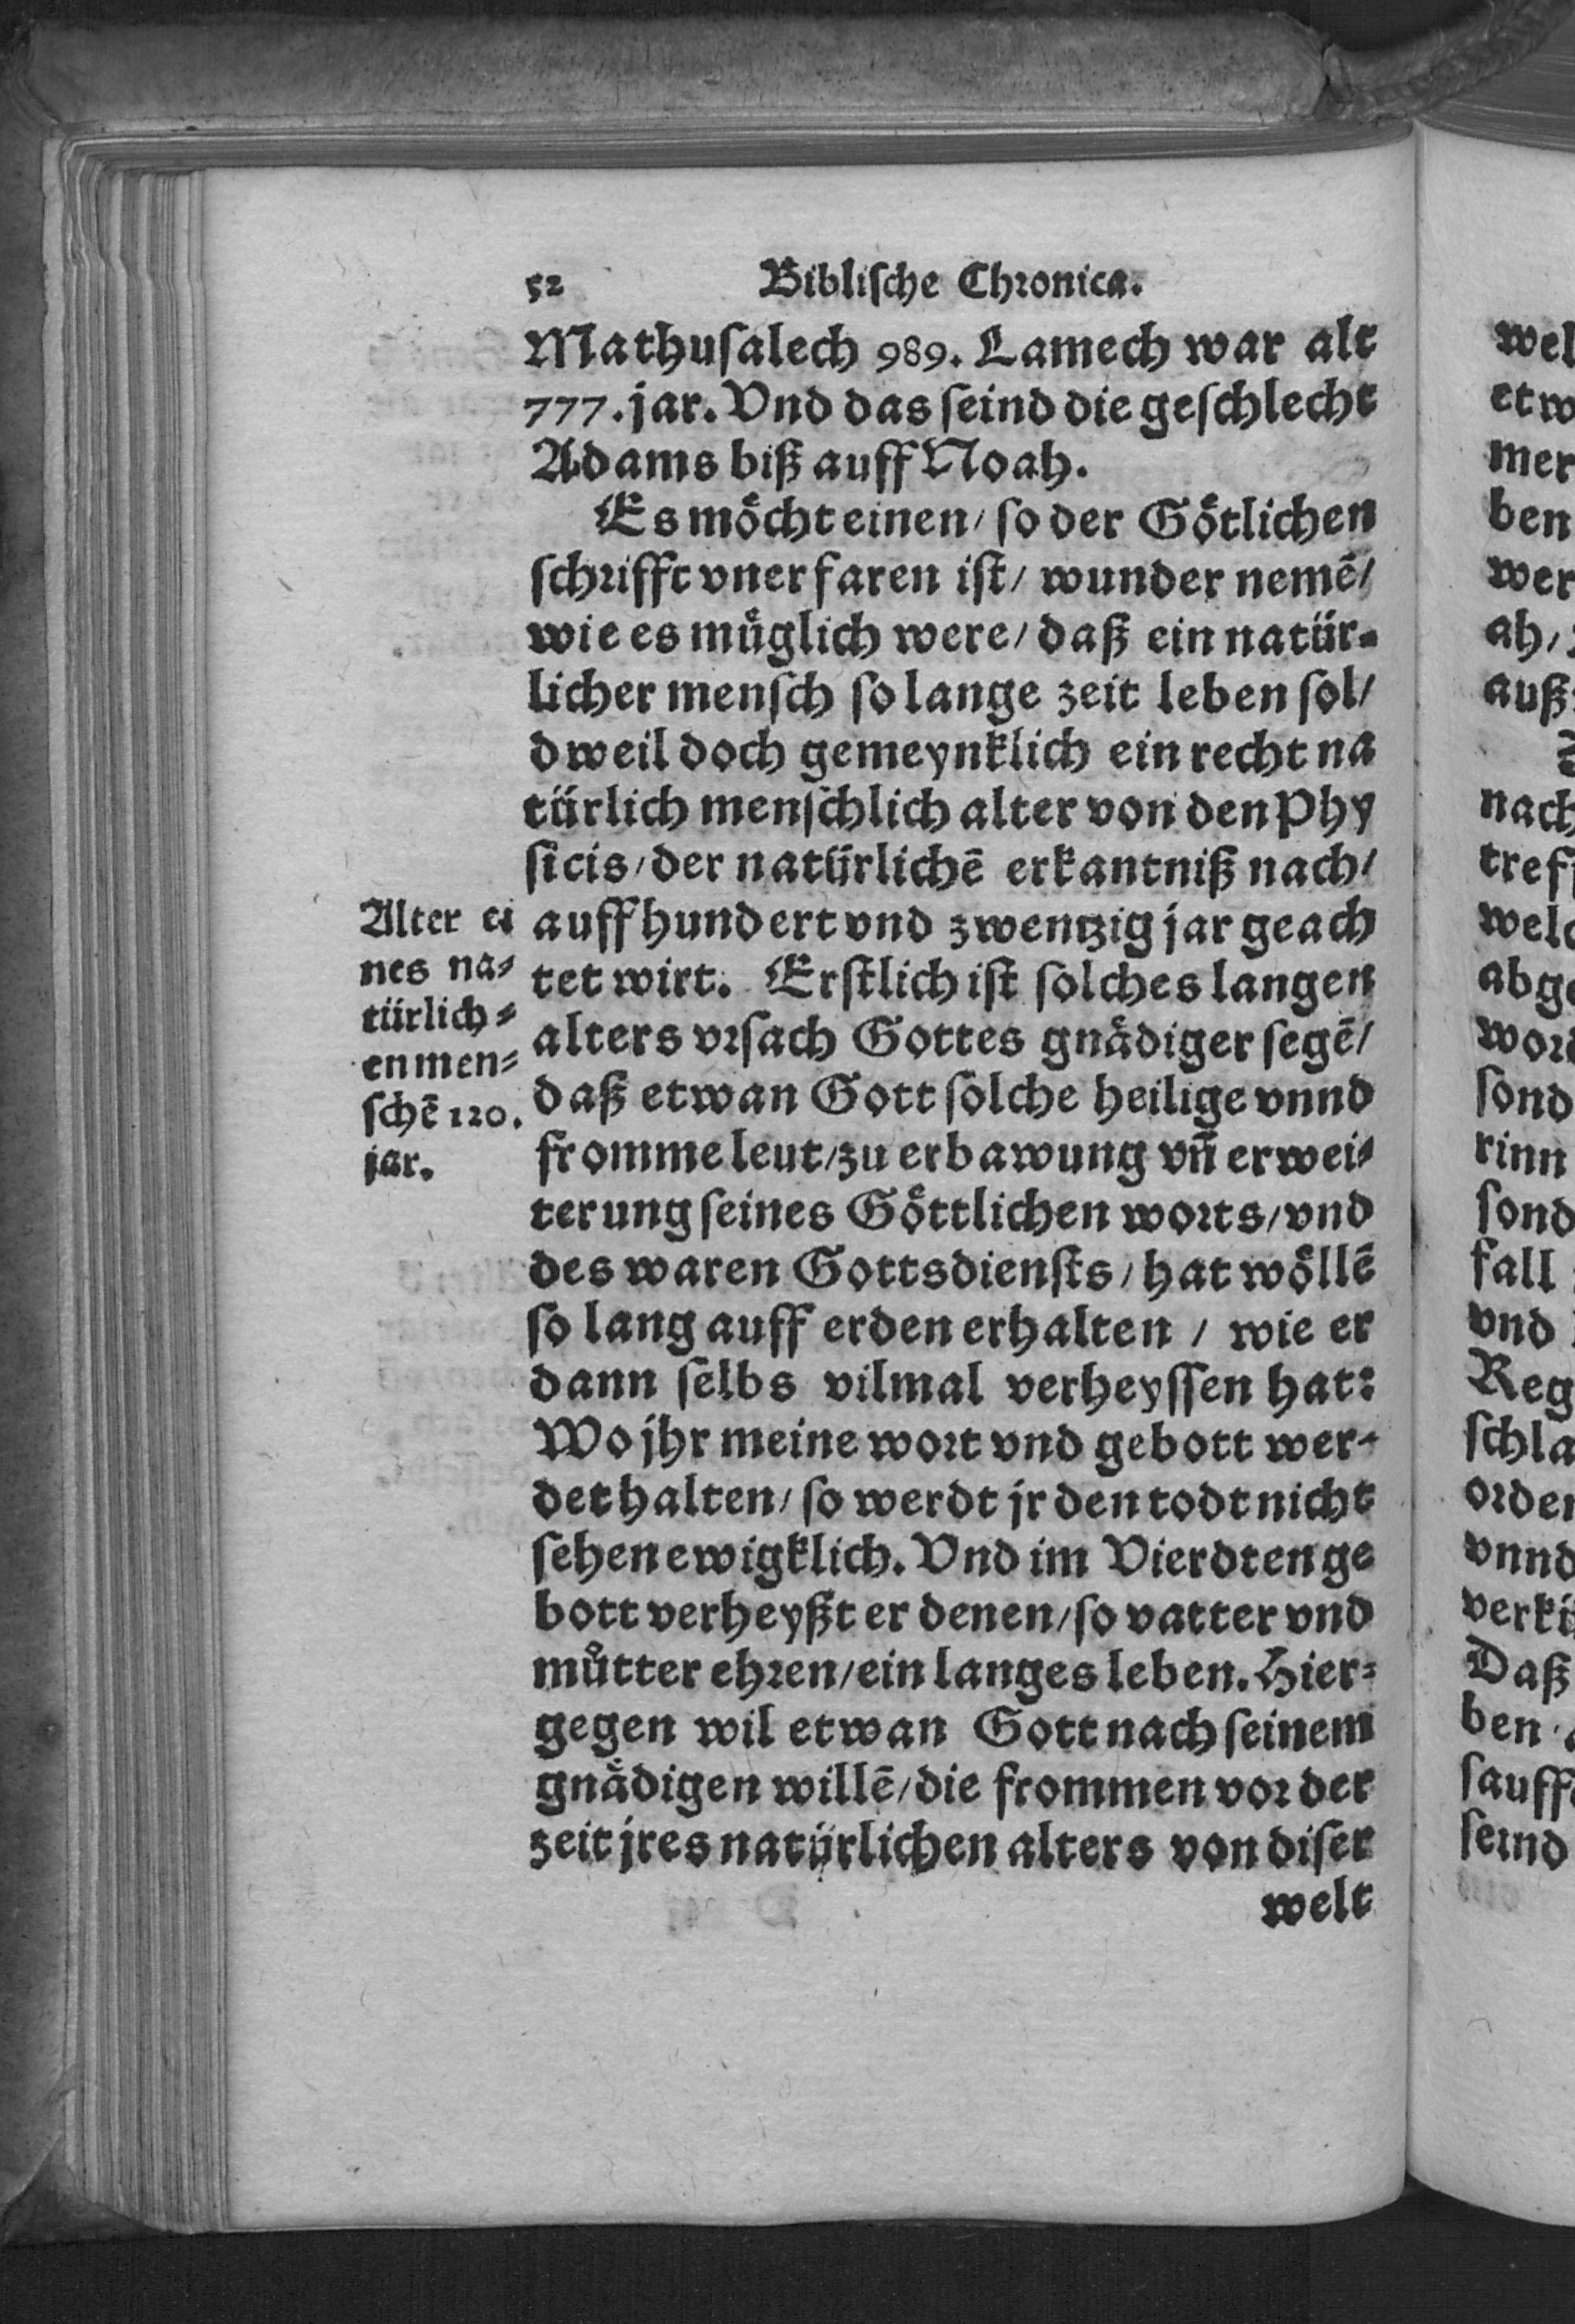 52 Biblische Chronica.
Mathusalech 989. Lamech war alt
777. jar. Vnd das seind die geschlecht
Adams biß auff Noah.
Es möcht einen/ so der Götlichen
schrifft vnerfaren ist/ wunder nemē/
wie es müglich were/ daß ein natür-
licher mensch so lange zeit leben sol/
dweil doch gemeynklich ein recht na
türlich menschlich alter von den Phy
sicis/ der natürlichē erkantniß nach/
auff hundert vnd zwentzig jar geach
tet wirt. Erstlich ist solches langen
alters vrsach Gottes gnädiger segē/
daß etwan Gott solche heilige vnnd
fromme leut/ zu erbawung vn̄ erwei-
terung seines Göttlichen worts/ vnd
des waren Gottsdiensts/ hat wöllē
so lang auff erden erhalten / wie er
dann selbs vilmal verheyssen hat:
Wo jhr meine wort vnd gebott wer-
det halten/ so werdt jr den todt nicht
sehen ewigklich. Vnd im Vierdten ge
bott verheyßt er denen/ so vatter vnd
můtter ehren/ ein langes leben. Hier-
gegen wil etwan Gott nach seinem
gnädigen willē/ die frommen vor der
zeit jres natürlichen alters von diser
welt
Alter ei
nes na-
türlich-
en men-
schē 120.
jar.
wel
etw
mer
ben
wer
ah/
auß
nach
tref
welc
abge
word
sond
rinn
sond
fall
vnd
Reg
schla
orden
vnnd
verkü
Daß
ben
sauff
seind